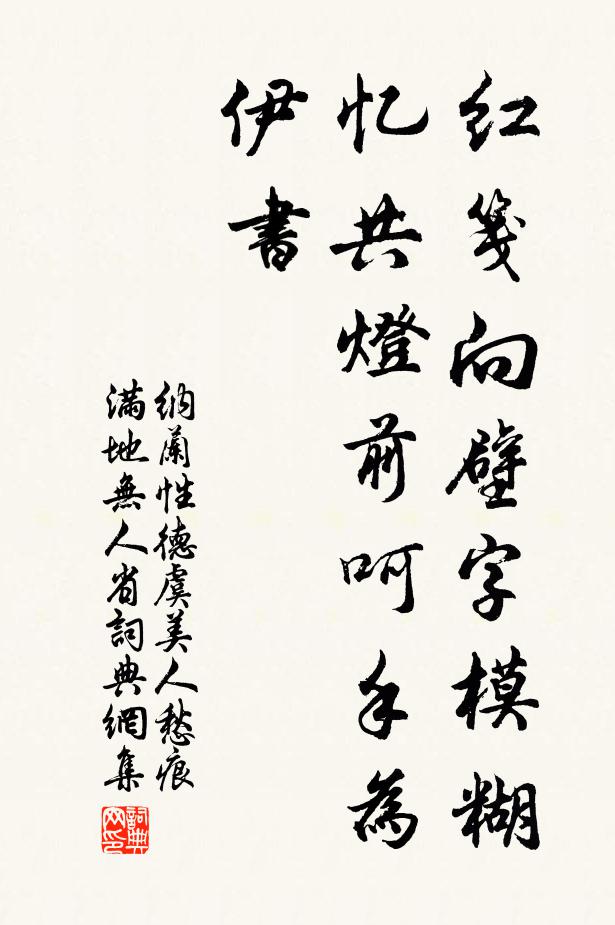 红笺向壁字模糊
忆共燈前呵手為
伊書
納蘭性德虞美人愁痕
滿地無人省詞典網集
詞典網印